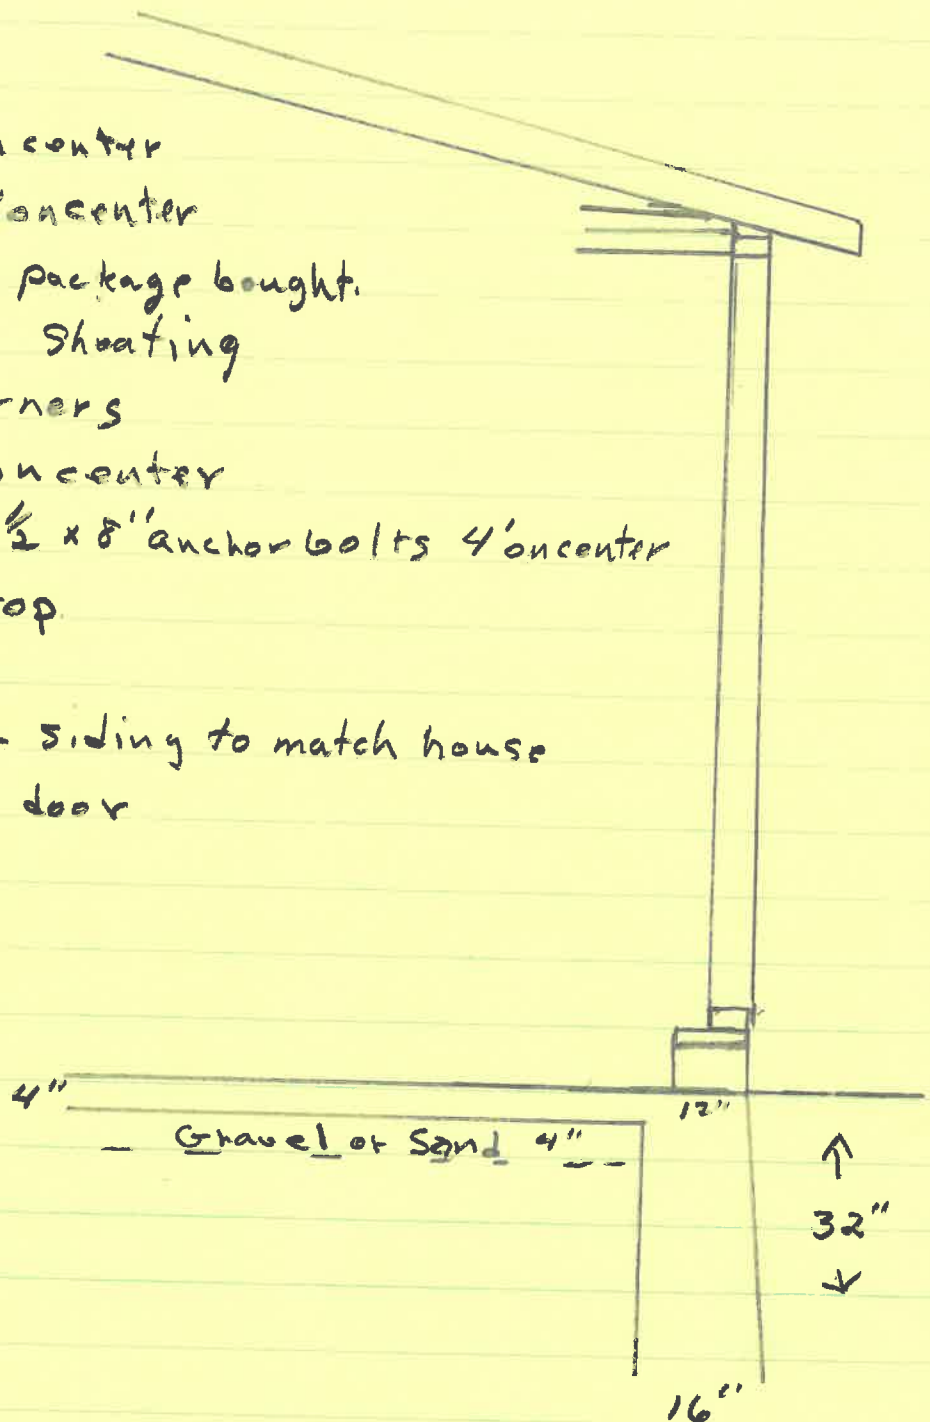 center
oncenter
package bought.
Shoating
rners
on center
1/2 x 8" anchor bolts 4' oncenter
top
siding to match house
door
4"
12"
Gravel or Sand 4"
32"
16"